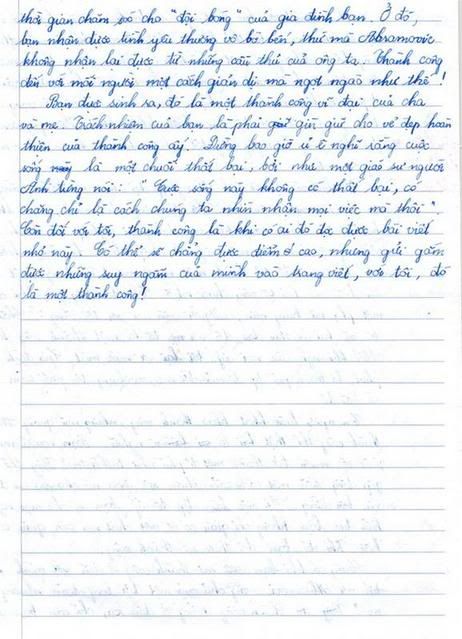 thời gian chăm sóc cho "đội bóng" của gia đình bạn. Ở đó,
bạn nhận được tình yêu thương vô bờ bến, thứ mà Abramovic
không nhận lại được từ những cầu thủ của ông ta. Thành công
đến với mỗi người một cách giản dị mà ngọt ngào như thế!
Bạn được sinh ra, đó là một thành công vĩ đại của cha
và mẹ. Trách nhiệm của bạn là phải gìn giữ cho vẻ đẹp hoàn
thiện của thành công ấy. Đừng bao giờ ủ ê nghĩ rằng cuộc
sống này là một chuỗi thất bại, bởi như một giáo sư người
Anh từng nói: "Cuộc sống này không có thất bại, có
chăng chỉ là cách chúng ta nhìn nhận mọi việc mà thôi".
Còn đối với tôi, thành công là khi có ai đó đọc được bài viết
nhỏ này. Có thể sẽ chẳng được điểm cao, nhưng gửi gắm
được những suy ngẫm của mình vào trang viết, với tôi, đó
là một thành công!